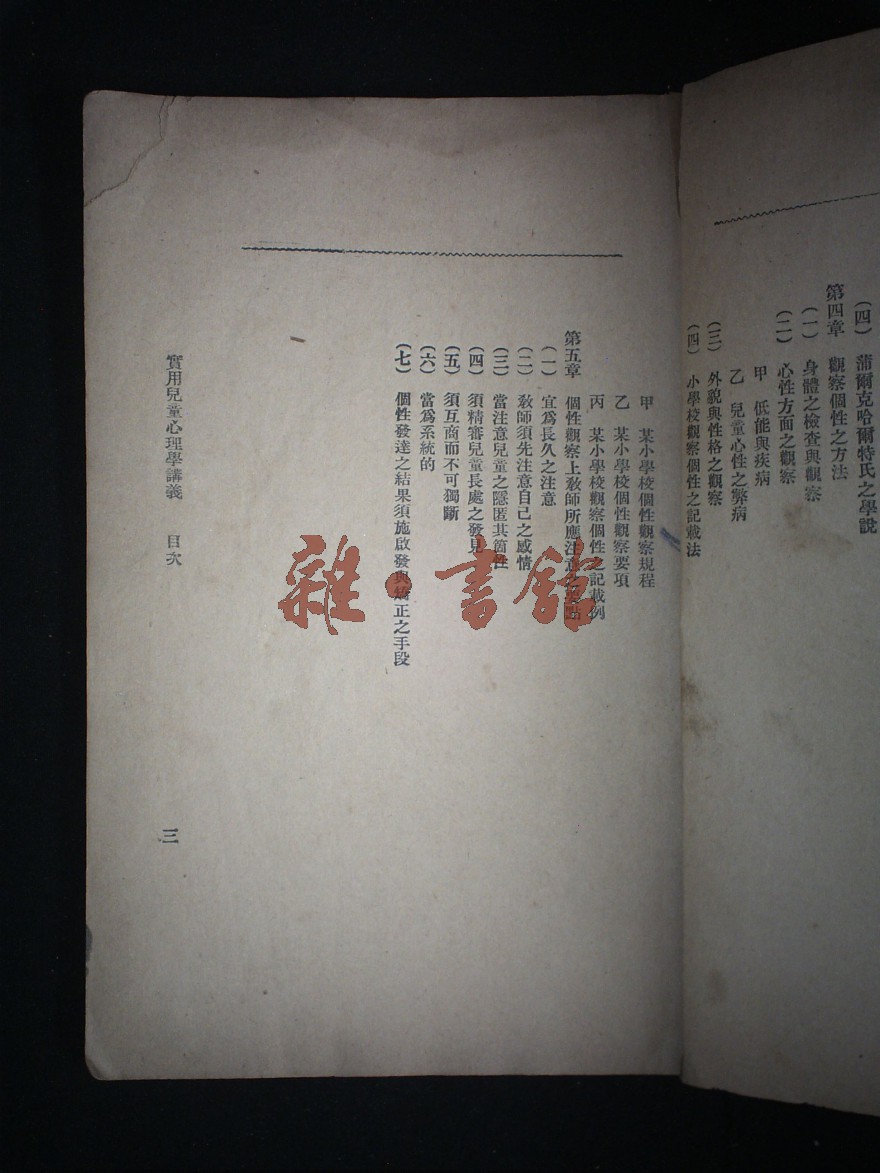 (四) 蒲爾克哈爾特氏之學說
第四章 觀察個性之方法
(一) 身體之檢查與觀察
(二) 心性方面之觀察
甲 低能與疾病
乙 兒童心性之弊病
(三) 外貌與性格之觀察
(四) 小學校觀察個性之記載法
甲 某小學校個性觀察規程
乙 某小學校個性觀察要項
丙 某小學校觀察個性之記載例
第五章 個性觀察上教師所應注意之要點
(一) 宜爲長久之注意
(二) 教師須先注意自己之感情
(三) 當注意兒童之隱匿其箇性
(四) 須精審兒童長處之發見
(五) 須互商而不可獨斷
(六) 當爲系統的
(七) 個性發達之結果須施啟發與矯正之手段
實用兒童心理學講義 目次
三
雜·書館